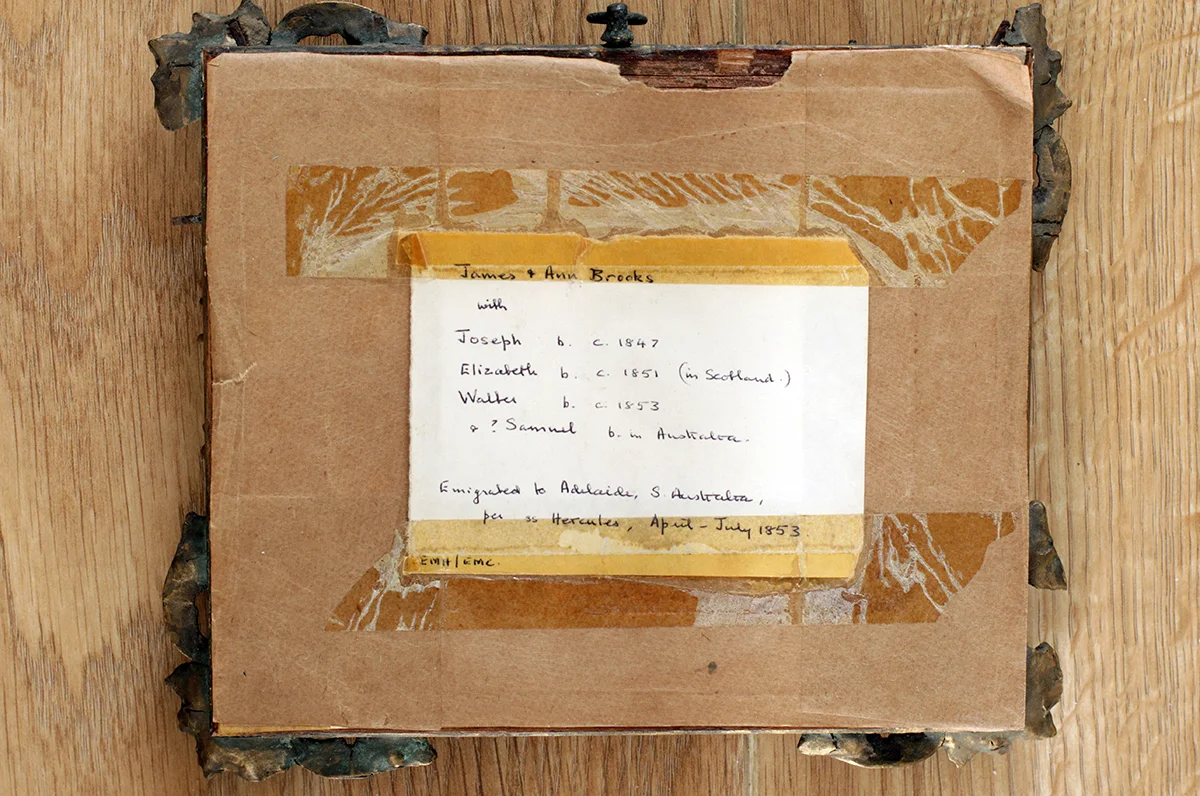 James & Ann Brooks
with
Joseph b. c. 1847
Elizabeth b. c. 1851 (in Scotland.)
Walter b. c. 1853
& ? Samuel b. in Australia.
Emigrated to Adelaide, S. Australia,
per ss Hercules, April - July 1853.
EMH/EMC.